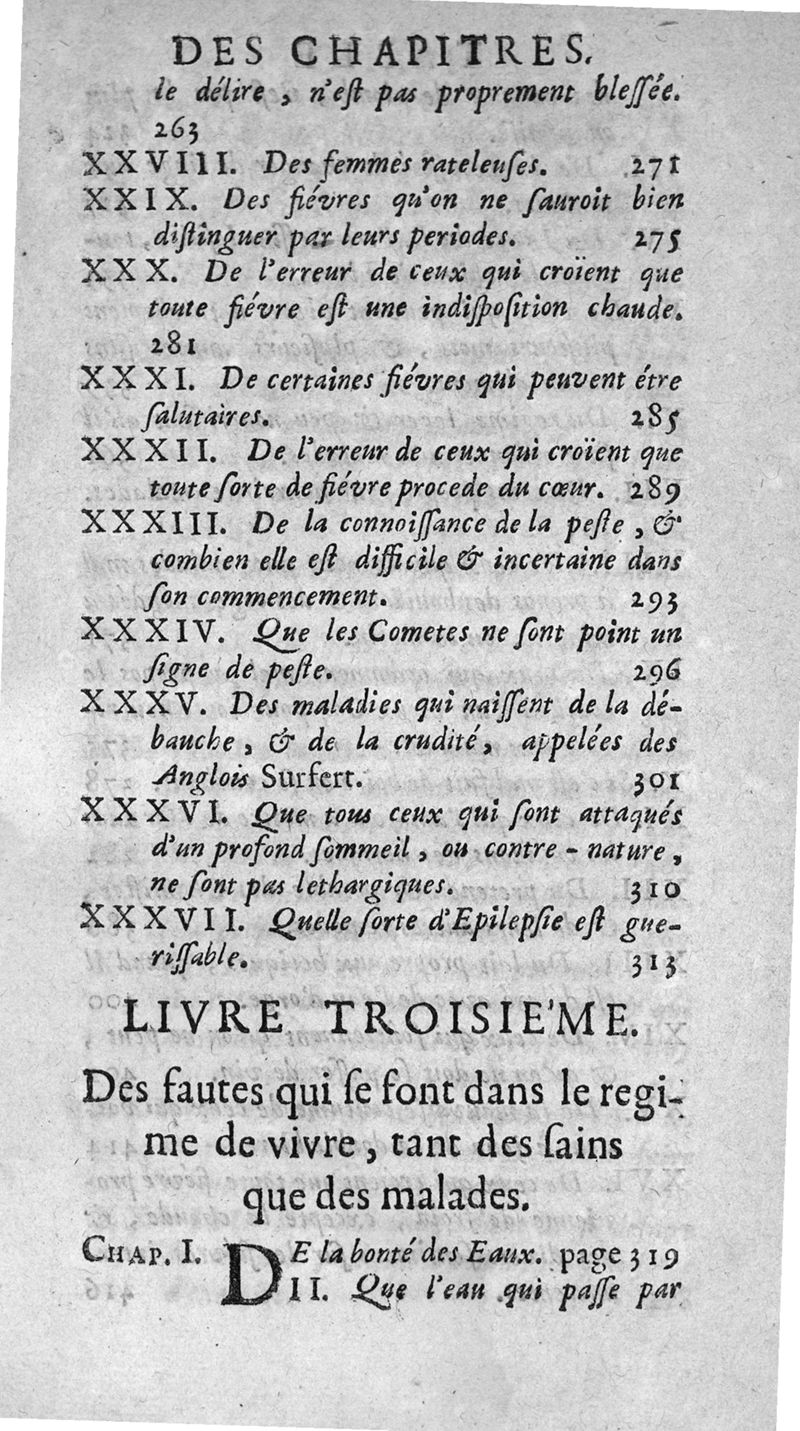 DES CHAPITRES.
le délire, n'eſt pas proprement bleſſée.
263
XXVIII. Des femmes rateleuſes. 271
XXIX. Des fiévres qu'on ne ſauroit bien
diſtinguer par leurs periodes. 275
XXX. De l'erreur de ceux qui croïent que
toute fiévre eſt une indiſpoſition chaude.
281
XXXI. De certaines fiévres qui peuvent étre
ſalutaires. 285
XXXII. De l'erreur de ceux qui croïent que
toute ſorte de fiévre procede du cœur. 289
XXXIII. De la connoiſſance de la peſte, &
combien elle eſt difficile & incertaine dans
ſon commencement. 293
XXXIV. Que les Cometes ne ſont point un
ſigne de peſte. 296
XXXV. Des maladies qui naiſſent de la dé-
bauche, & de la crudité, appelées des
Anglois Surfert. 301
XXXVI. Que tous ceux qui ſont attaqués
d'un profond ſommeil, ou contre-nature,
ne ſont pas lethargiques. 310
XXXVII. Quelle ſorte d'Epilepſie eſt gue-
riſſable. 313
LIVRE TROISIE'ME.
Des fautes qui ſe font dans le regi-
me de vivre, tant des ſains
que des malades.
CHAP. I. DE la bonté des Eaux. page 319
II. Que l'eau qui paſſe par